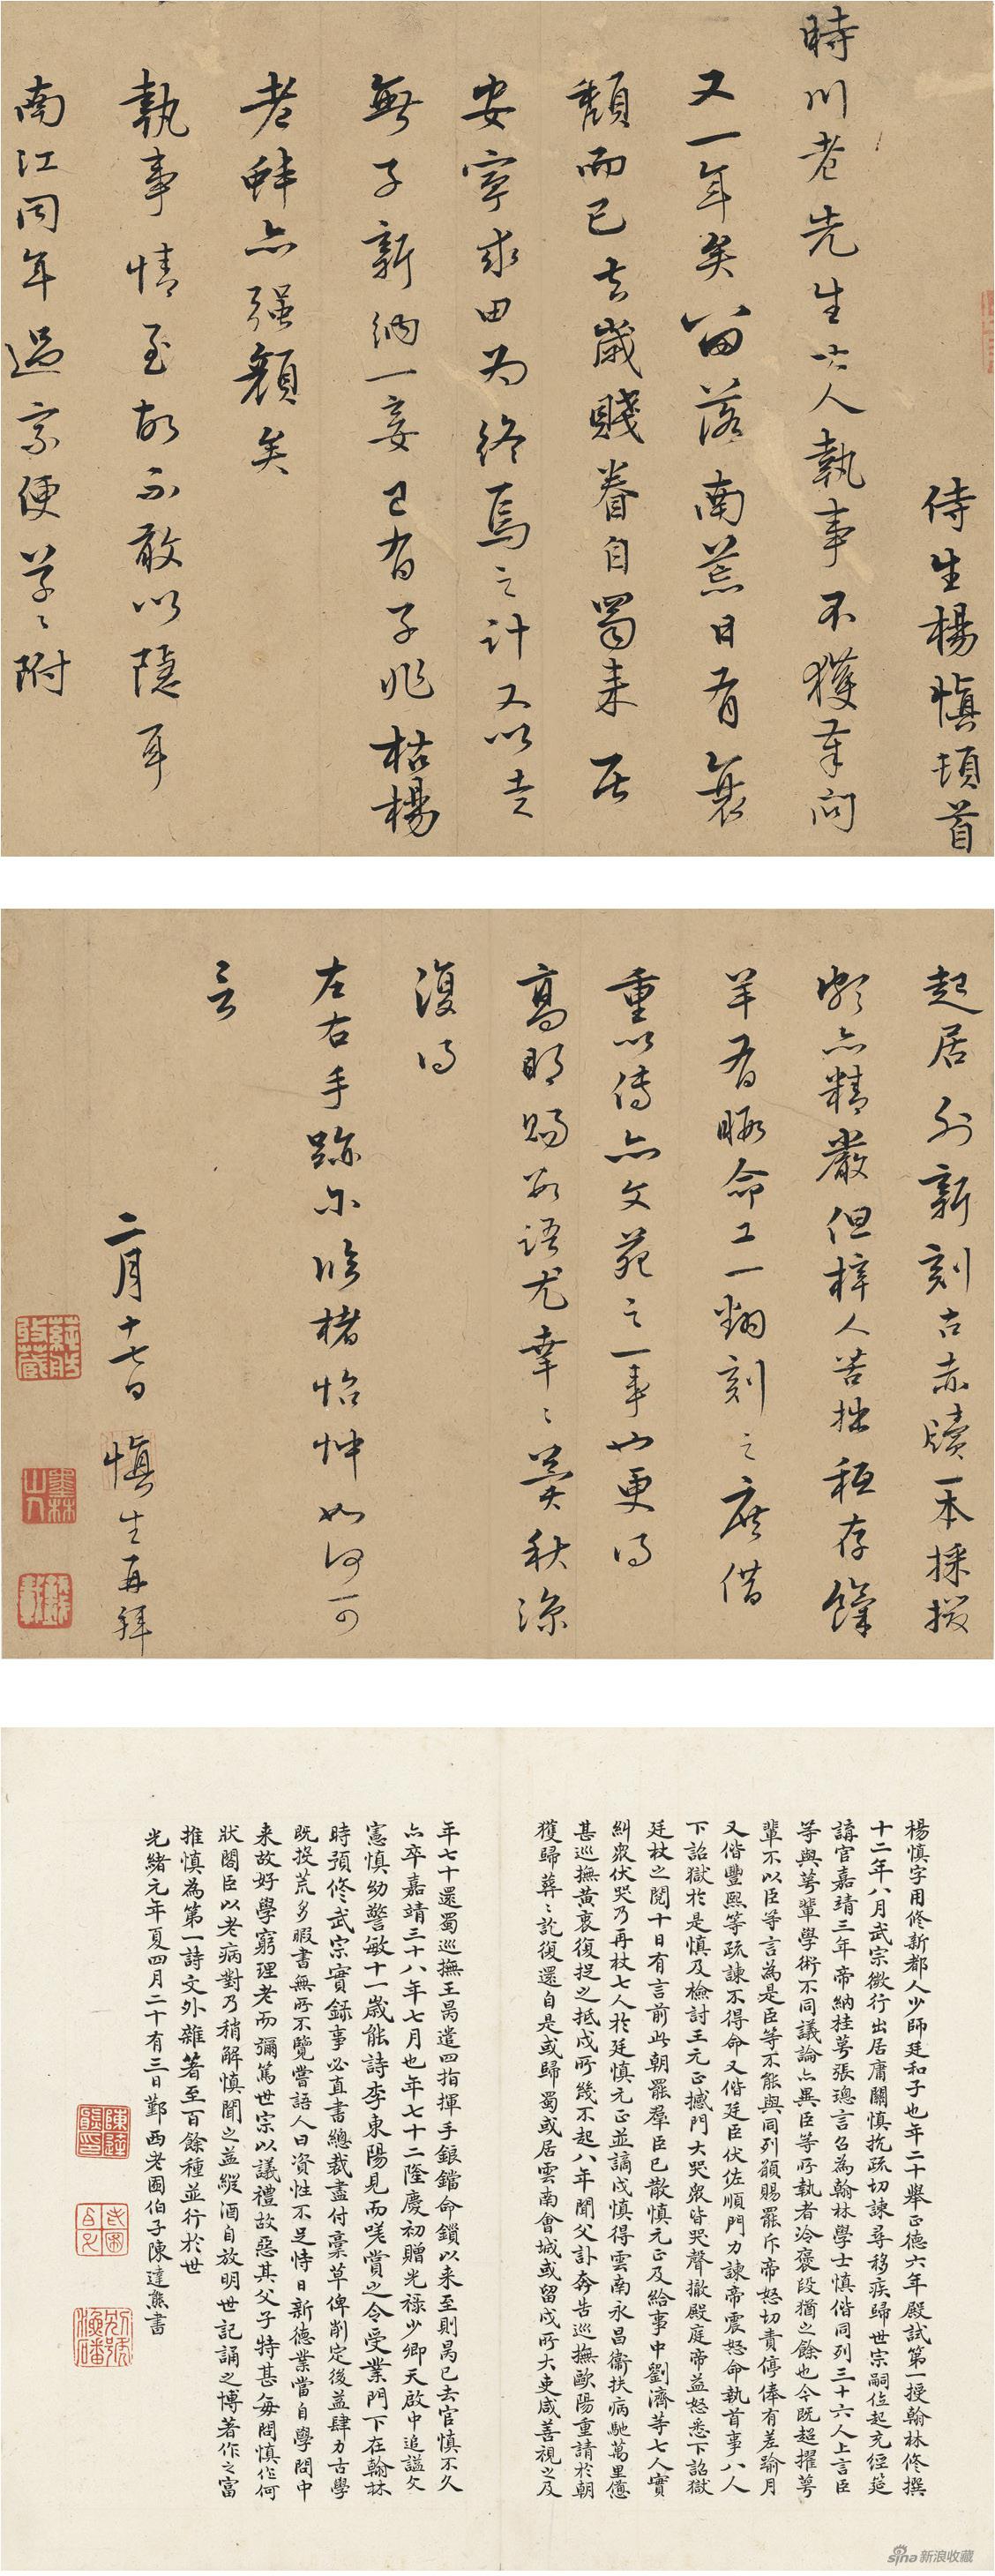 侍生楊慎頓首
時川老先生大人執事不獲奉問
又一年矣留落南荒日有衰
頹而已去歲賤眷自蜀來居
安寧求田為終焉之計又以老
無子新納一妾已有子兆枯楊
老蚌亦强顏矣
執事情至故不敢以隱耳
南江同年過家便草々附
起居外新刻古赤牘一本採掇
頗亦精嚴但梓人苦拙極存餼
羊有暇命工一翻刻之庶借
重以傳亦文苑之一事也更得
高明賜數語尤幸々冀秋涼
復得
左右手跡示臨楮怡忡如何可
言
二月十七日 慎生再拜
楊慎字用修新都人少師廷和子也年二十舉正德六年殿試第一授翰林修撰
十二年八月武宗微行出居庸關慎抗疏切諫尋移疾歸世宗嗣位起充經筵
講官嘉靖三年帝納桂萼張璁言召為翰林學士慎偕同列三十六人上言臣
等與萼輩學術不同議論亦異臣等所執者冷褒段猶之餘也今既超擢萼
輩不以臣等言為是臣等不能與同列願賜罷斥帝怒切責停俸有差踰月
又偕豐熙等疏諫不得命又偕廷臣伏佐順門力諫帝震怒命執首事八人
下詔獄於是慎及檢討王元正撼門大哭衆皆哭聲撤殿庭帝益怒悉下詔獄
廷杖之閱十日有言前此朝罷羣臣已散慎元正及給事中劉濟等七人實
糾衆伏哭乃再杖七人於廷慎元正並謫戍慎得雲南永昌衞扶病馳萬里憊
甚巡撫黃衷復捉之抵戍所幾不起八年聞父訃奔告巡撫歐陽重請於朝
獲歸葬々訖復還自是或歸蜀或居雲南會城或留戍所大吏咸善視之及
年七十還蜀巡撫王昺遣四指揮手鋃鐺命鎖以来至則昺已去官慎不久
亦卒嘉靖三十八年七月也年七十二隆慶初贈光祿少卿天啟中追謚文
憲慎幼警敏十一歲能詩李東陽見而嗟賞之令受業門下在翰林
時預修武宗實録事必直書總裁盡付稾草俾削定後益肆力古學
既投荒多暇書無所不覽嘗語人曰資性不足恃日新德業當自學問中
来故好學窮理老而彌篤世宗以議禮故惡其父子特甚每問慎作何
狀閣臣以老病對乃稍解慎聞之益縱酒自放明世記誦之博著作之富
推慎為第一詩文外雜著至百餘種並行於世
光緒元年夏四月二十有三日鄞西老圃伯子陳達熊書
sina新浪收藏